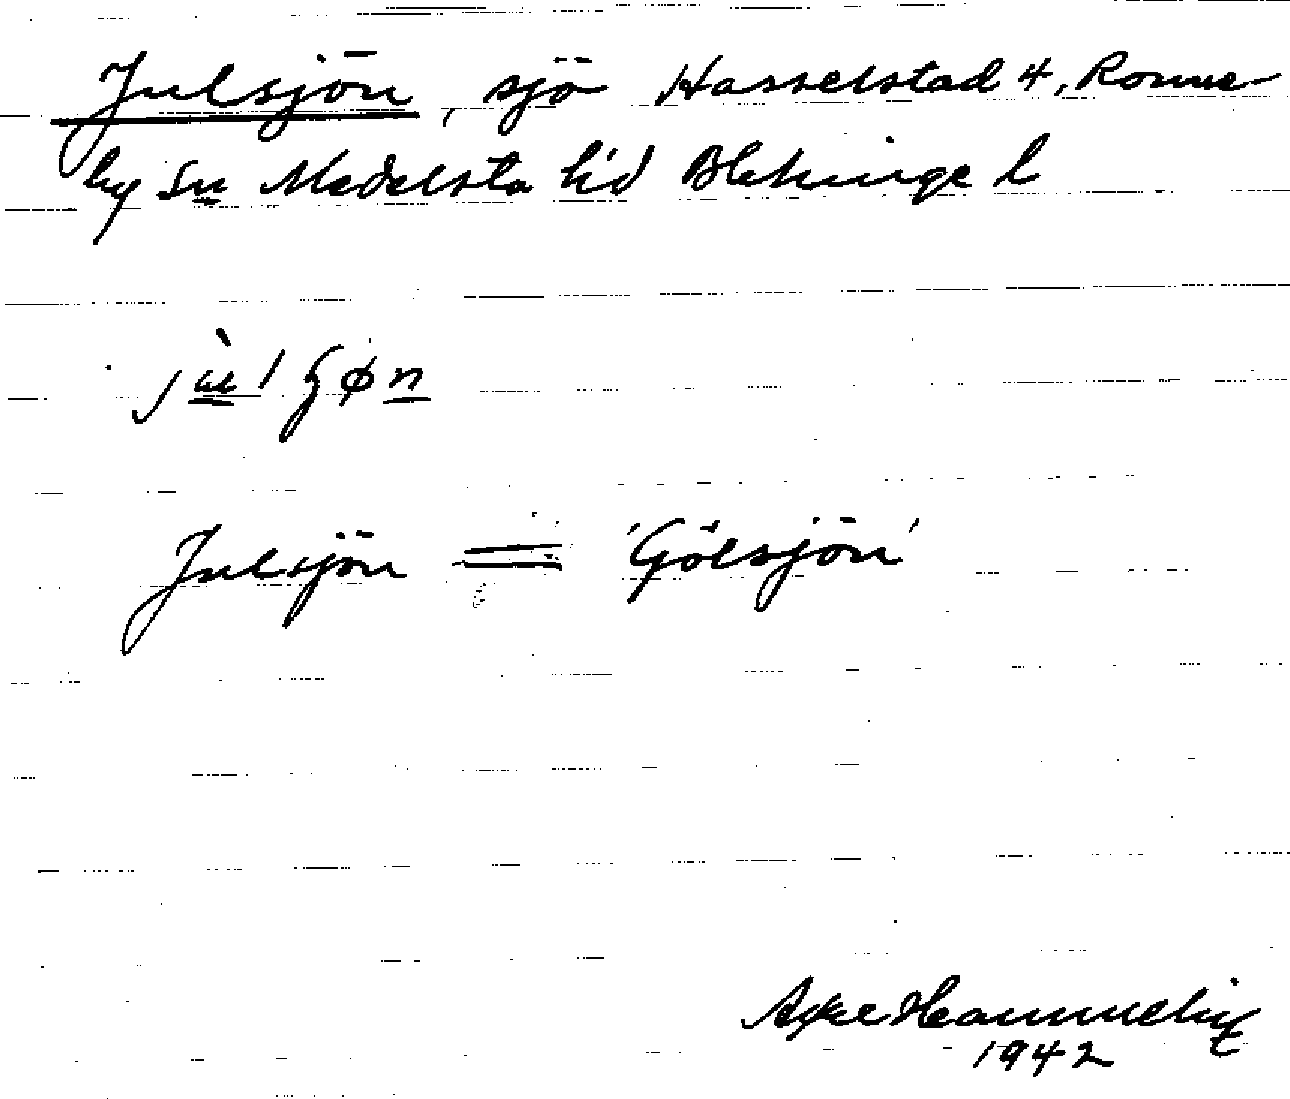 Julsjön, sjö Hasselstad 4, Ronne-
by sn Medelsta hd Blekinge l
Julsjön = 'Gölsjön'
1942